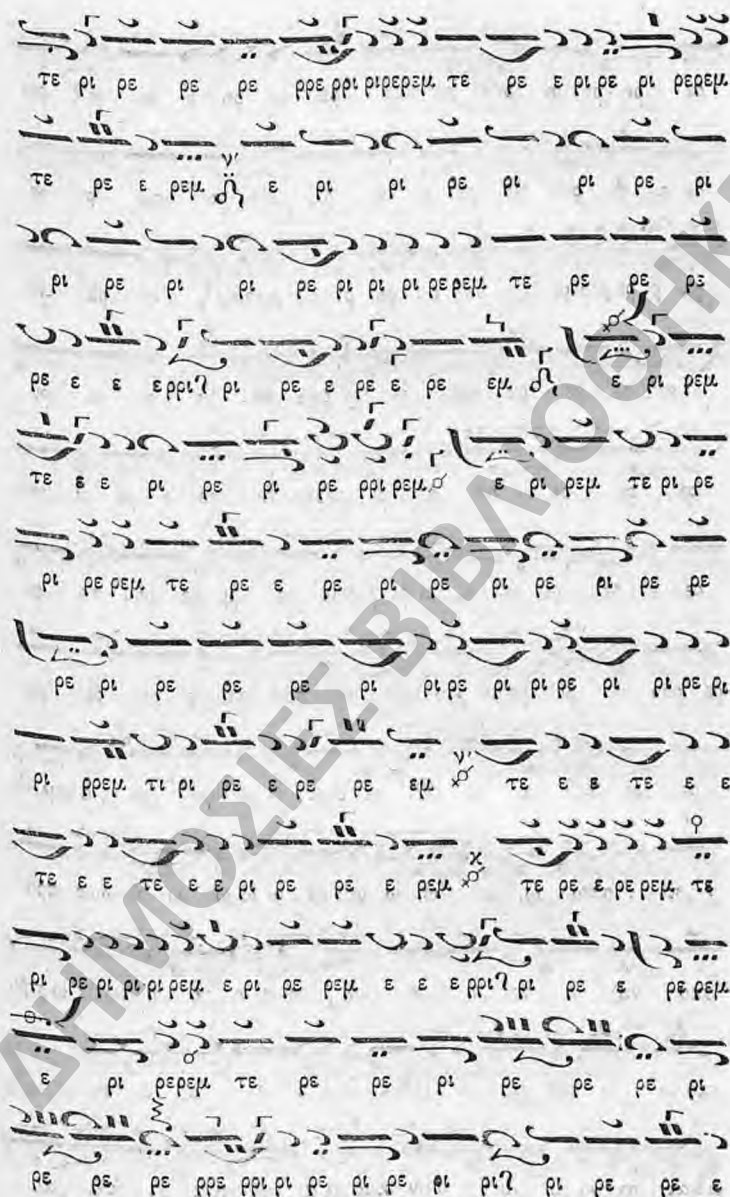 τε ρι ρε ρε ρε ρρε ρρι ριρερεμ τε ρε ε ρι ρε ρι ρερεμ
τε ρε ε ρεμ ε ρι ρι ρε ρι ρι ρε ρι
ρι ρε ρι ρι ρε ρι ρι ρι ρε ρεμ τε ρε ρε ρε
ρε ε ε ε ρρι ρι ρε ε ρε ε ρε εμ ε ρι ρεμ
τε ε ε ρι ρε ρι ρε ρρι ρεμ ε ρι ρεμ τε ρι ρε
ρι ρε ρεμ τε ρε ε ρε ρι ρε ρι ρε ρι ρε ρε
ρε ρι ρε ρε ρε ρι ρι ρε ρι ρι ρε ρι ρι ρε ρι
ρι ρρεμ τι ρι ρε ε ρε ρε εμ τε ε ε τε ε ε
τε ε ε τε ε ε ρι ρε ρε ε ρεμ τε ρε ε ρε ρεμ τε
ρι ρε ρι ρι ρι ρεμ ε ρι ρε ρεμ ε ε ε ρρι ρι ρε ε ρε ρεμ
ε ρι ρερεμ τε ρε ρε ρι ρε ρε ρε ρι
ρε ρε ρε ρρε ρρι ρι ρε ρι ρε ρι ρι ρι ρε ρε ε
ΔΗΜΟΣΙΕΣ ΒΙΒΛΙΟΘΗΚΕ